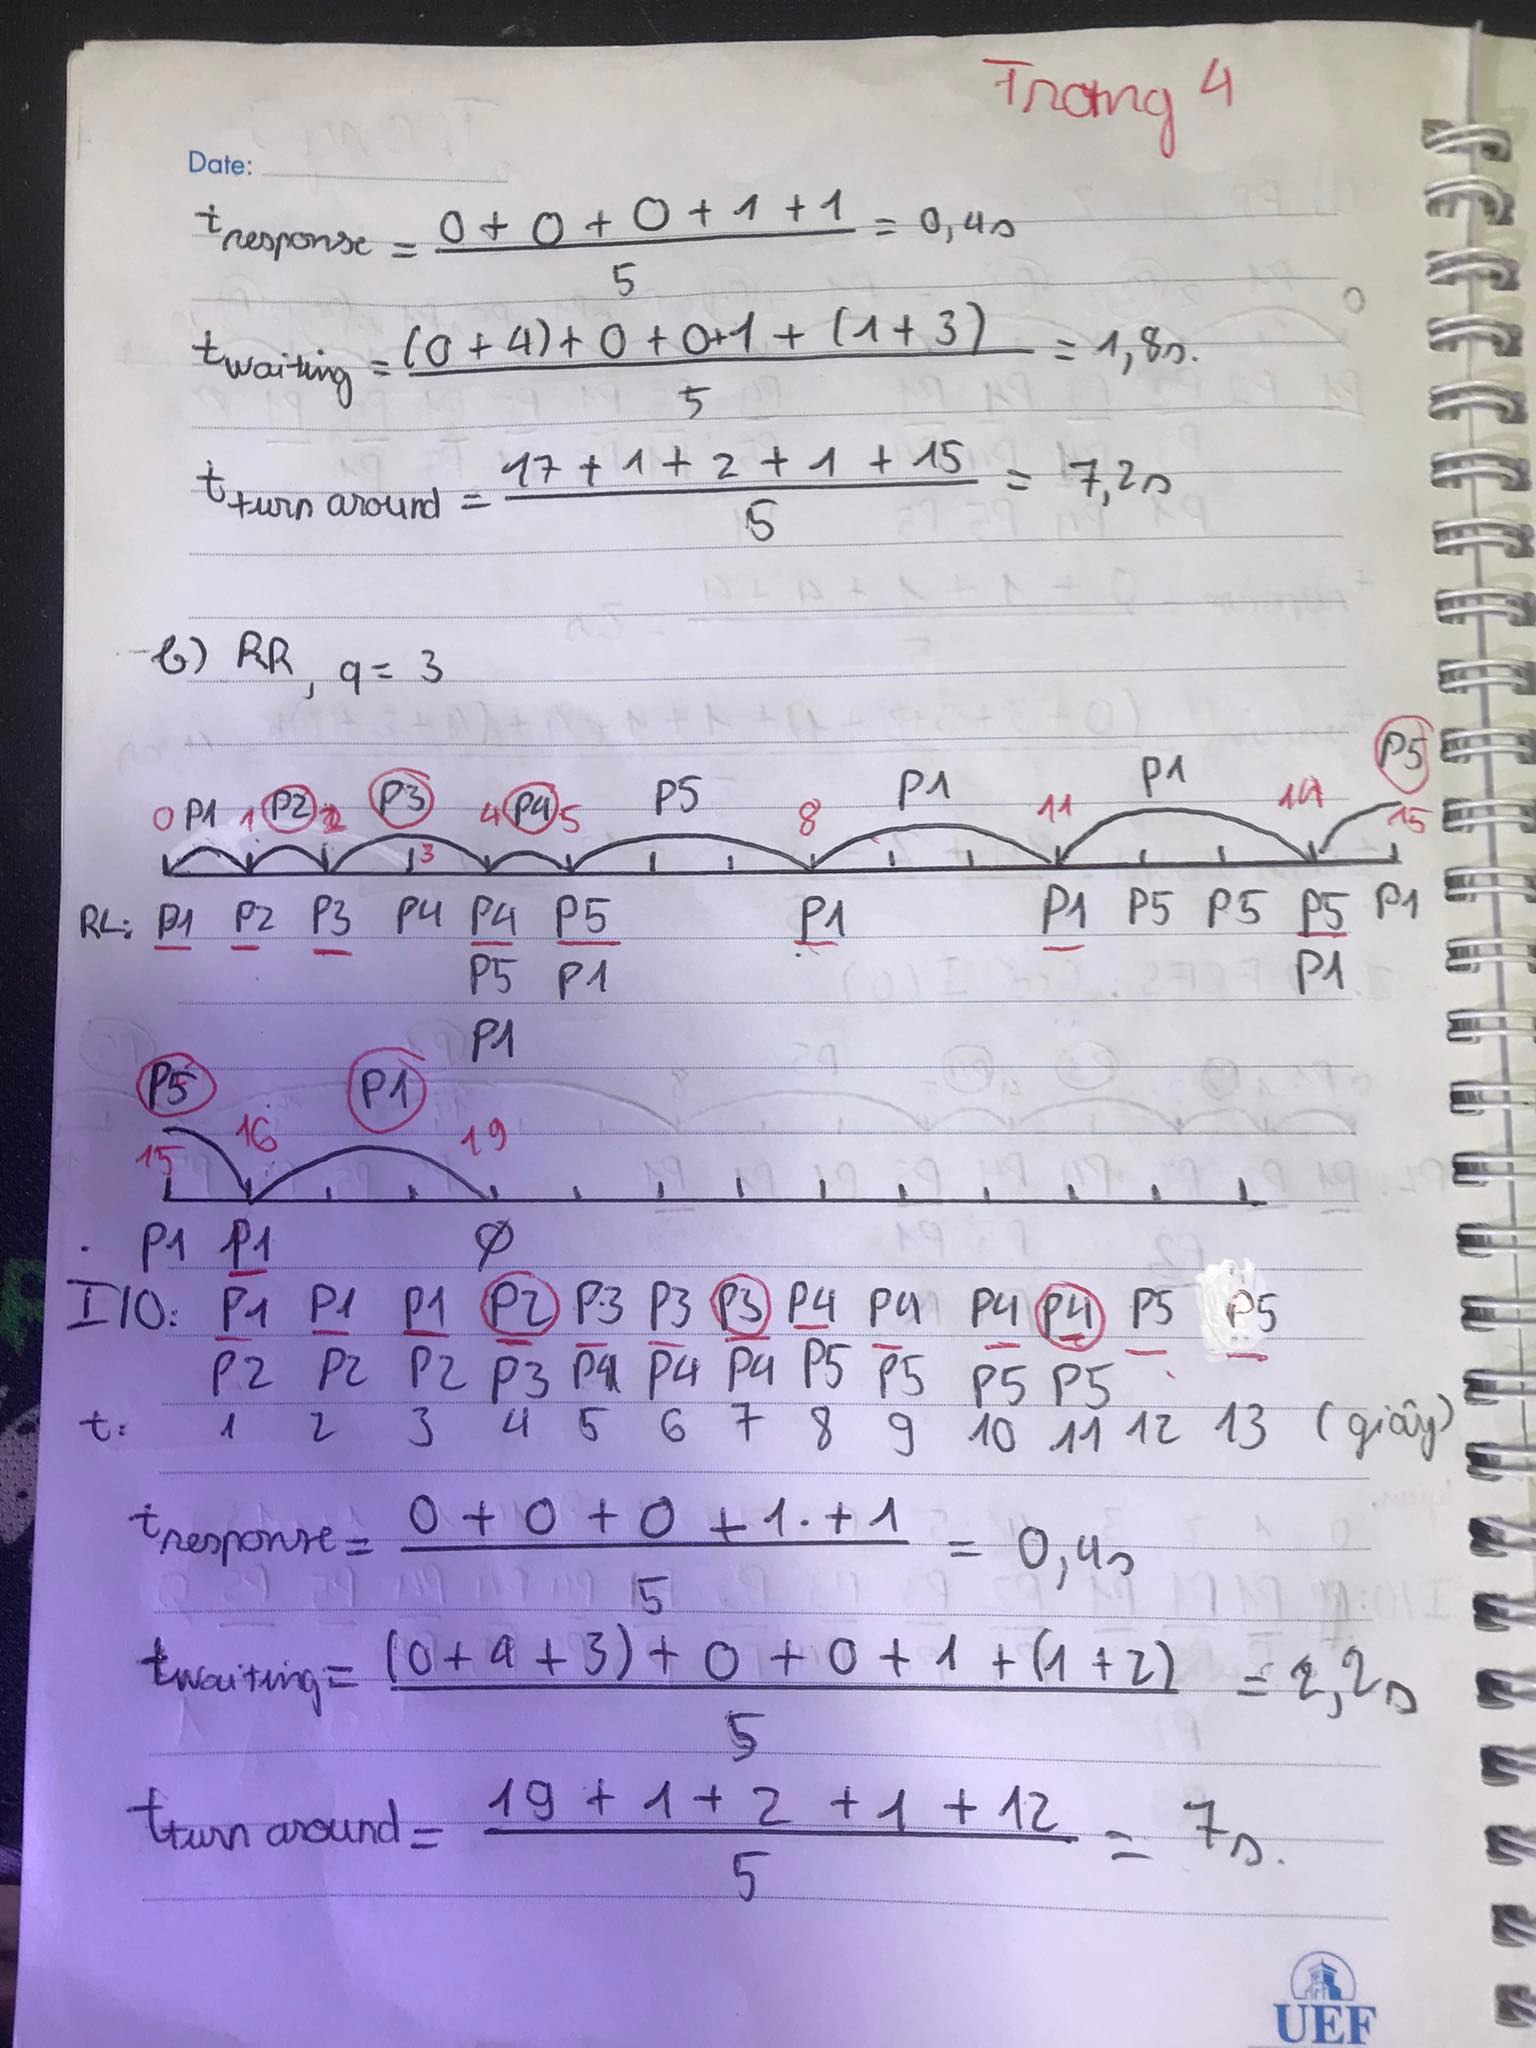 Trang 4
Date:
t response = (0 + 0 + 0 + 1 + 1) / 5 = 0,4s
t waiting = ((0 + 4) + 0 + 0+1 + (1 + 3)) / 5 = 1,8s.
t turn around = (17 + 1 + 2 + 1 + 15) / 5 = 7,2s
b) RR, q = 3
0 P1 1 P2 2 P3 3 4 P4 5 P5 8 P1 11 P1 14 P5 15
RL: P1 P2 P3 P4 P4 P5 P1 P1 P5 P5 P5 P1
P5 P1 P1
P1
P5 P1
15 16 19
P1 P1 Ø
I/O: P1 P1 P1 P2 P3 P3 P3 P4 P4 P4 P4 P5 P5
P2 P2 P2 P3 P4 P4 P4 P5 P5 P5 P5
t: 1 2 3 4 5 6 7 8 9 10 11 12 13 (giây)
t response = (0 + 0 + 0 + 1 + 1) / 5 = 0,4s
t waiting = ((0 + 4 + 3) + 0 + 0 + 1 + (1 + 2)) / 5 = 2,2s
t turn around = (19 + 1 + 2 + 1 + 12) / 5 = 7s.
UEF